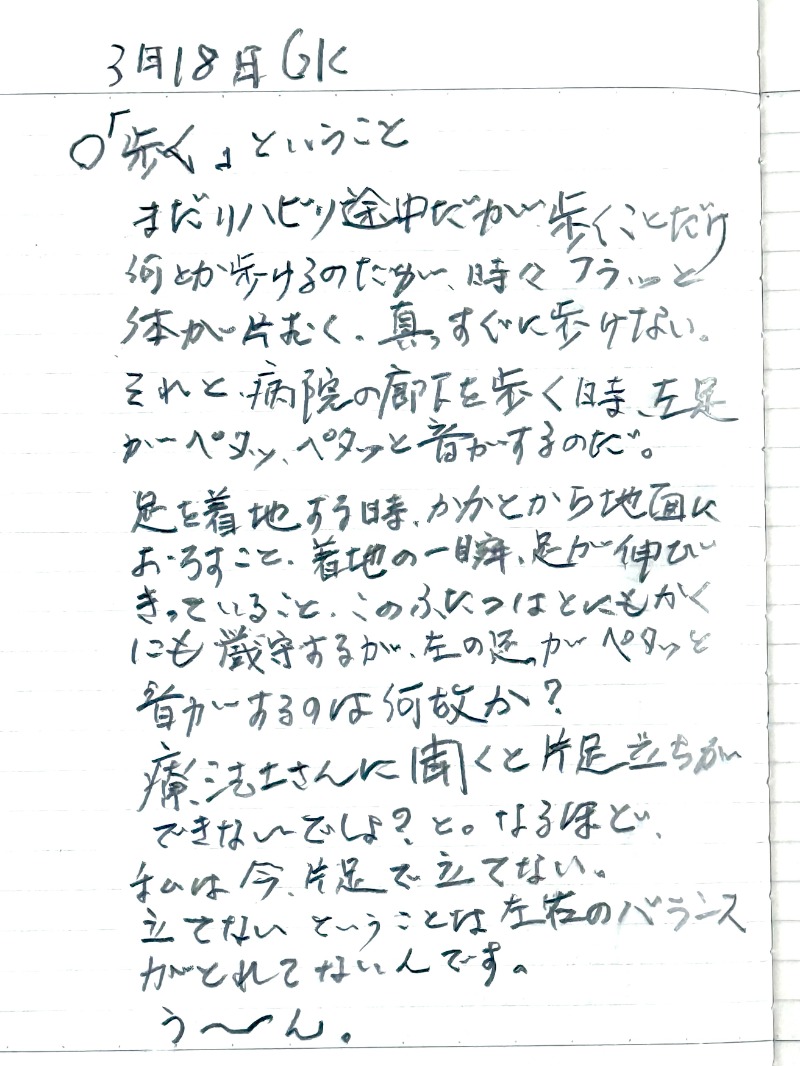 3月18日 GK
○「歩く」ということ
まだリハビリ途中だが歩くことだけ
何とか歩けるのだが、時々フラッと
体が片むく、真っすぐに歩けない。
それと、病院の廊下を歩く時、左足
がペタッ、ペタッと音がするのだ。
足を着地する時、かかとから地面に
おろすこと、着地の一瞬、足が伸び
きっていること、このふたつはとにもかく
にも厳守するが、左の足がペタッと
音がするのは何故か?
療法士さんに聞くと片足立ちが
できないでしょ?と。なるほど、
私は今、片足で立てない。
立てないということは左右のバランス
がとれてないんです。
う〜ん。